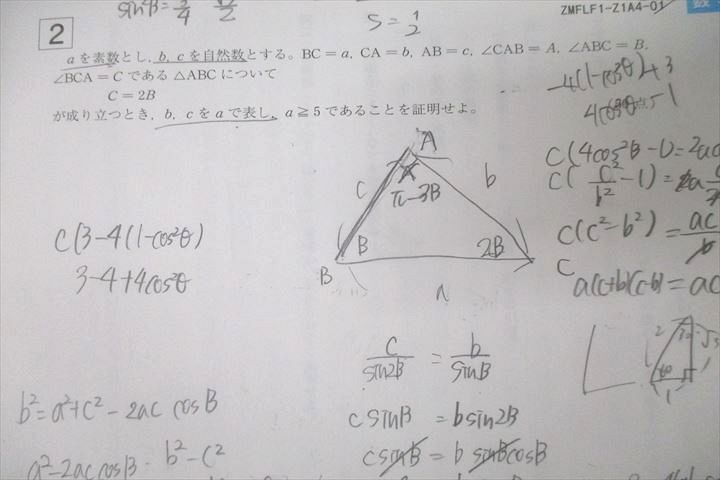 ZMFLF1-Z1A4-01
数
S = 1/2
2
aを素数とし, b, cを自然数とする。BC = a, CA = b, AB = c, ∠CAB = A, ∠ABC = B,
∠BCA = C である △ABC について
C = 2B
が成り立つとき, b, c を a で表し, a ≧ 5 であることを証明せよ。
-4(1-cos²θ)+3
4cos²θ-1
c(4cos²B-1)=2ac
c(c²/b²-1)=
c(c²-b²)=
a(c+b)(c-b)=ac
A
c
b
π-3B
B
B
2B
C
a
c(3-4(1-cos²θ)
3-4+4cos²θ
c/sin2B = b/sinB
c sinB = b sin2B
c sinB = b sinB cosB
b²=a²+c²-2ac cosB
a²-2ac cosB
b²-c²
2
√3
60
1